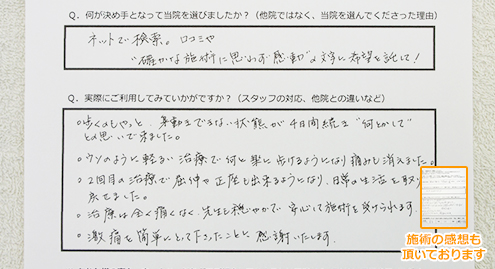 Q. 何が決め手となって当院を選びましたか？（他院ではなく、当院を選んでくださった理由）
ネットで検索。口コミや
"確かな施術に思わず感動"の文字に希望を託して！
Q. 実際にご利用してみていかがですか？（スタッフの対応、他院との違いなど）
○歩くのもやっと、身動きできない状態が4日間続き"何とかして"
との思いで来ました。
○ウソのように軽るい治療で何と楽に歩けるようになり痛みも消えました。
○2回目の治療で屈伸や正座も出来るようになり、日常の生活を取り
戻せました。
○治療は全く痛くなく、先生も穏やかで安心して施術を受けられます。
○激痛を簡単にとって下さったことに感謝いたします。
施術の感想も
頂いております